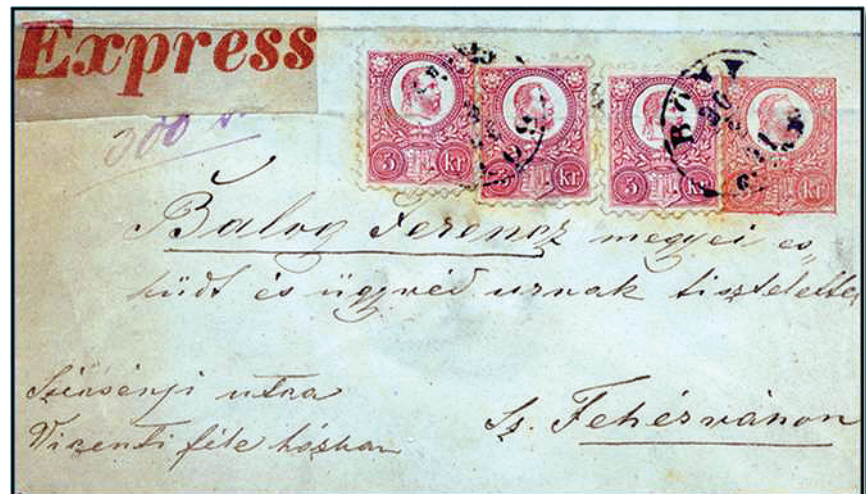 Express
300
5 kr 5 kr 5 kr 5 kr
Balog Ferencz megyei es
küdt és ügyvéd urnak tisztelettel
utra
féle házban
Sz. Fehérváron